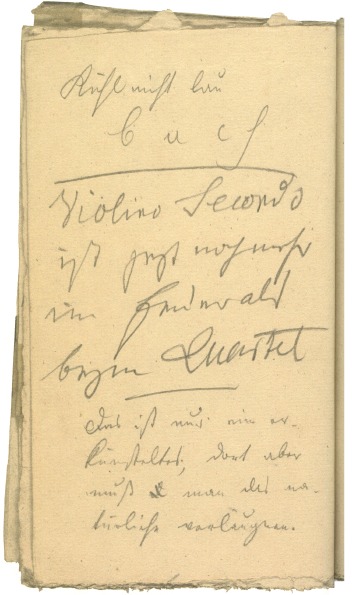 Kühl nicht lau
b a c h
Violino Secondo
ist jezt noch mehr
im Feuer als
beym Quartet
das ist nur ein er-
künsteltes, dort aber
muß man das na-
türliche verläugnen.